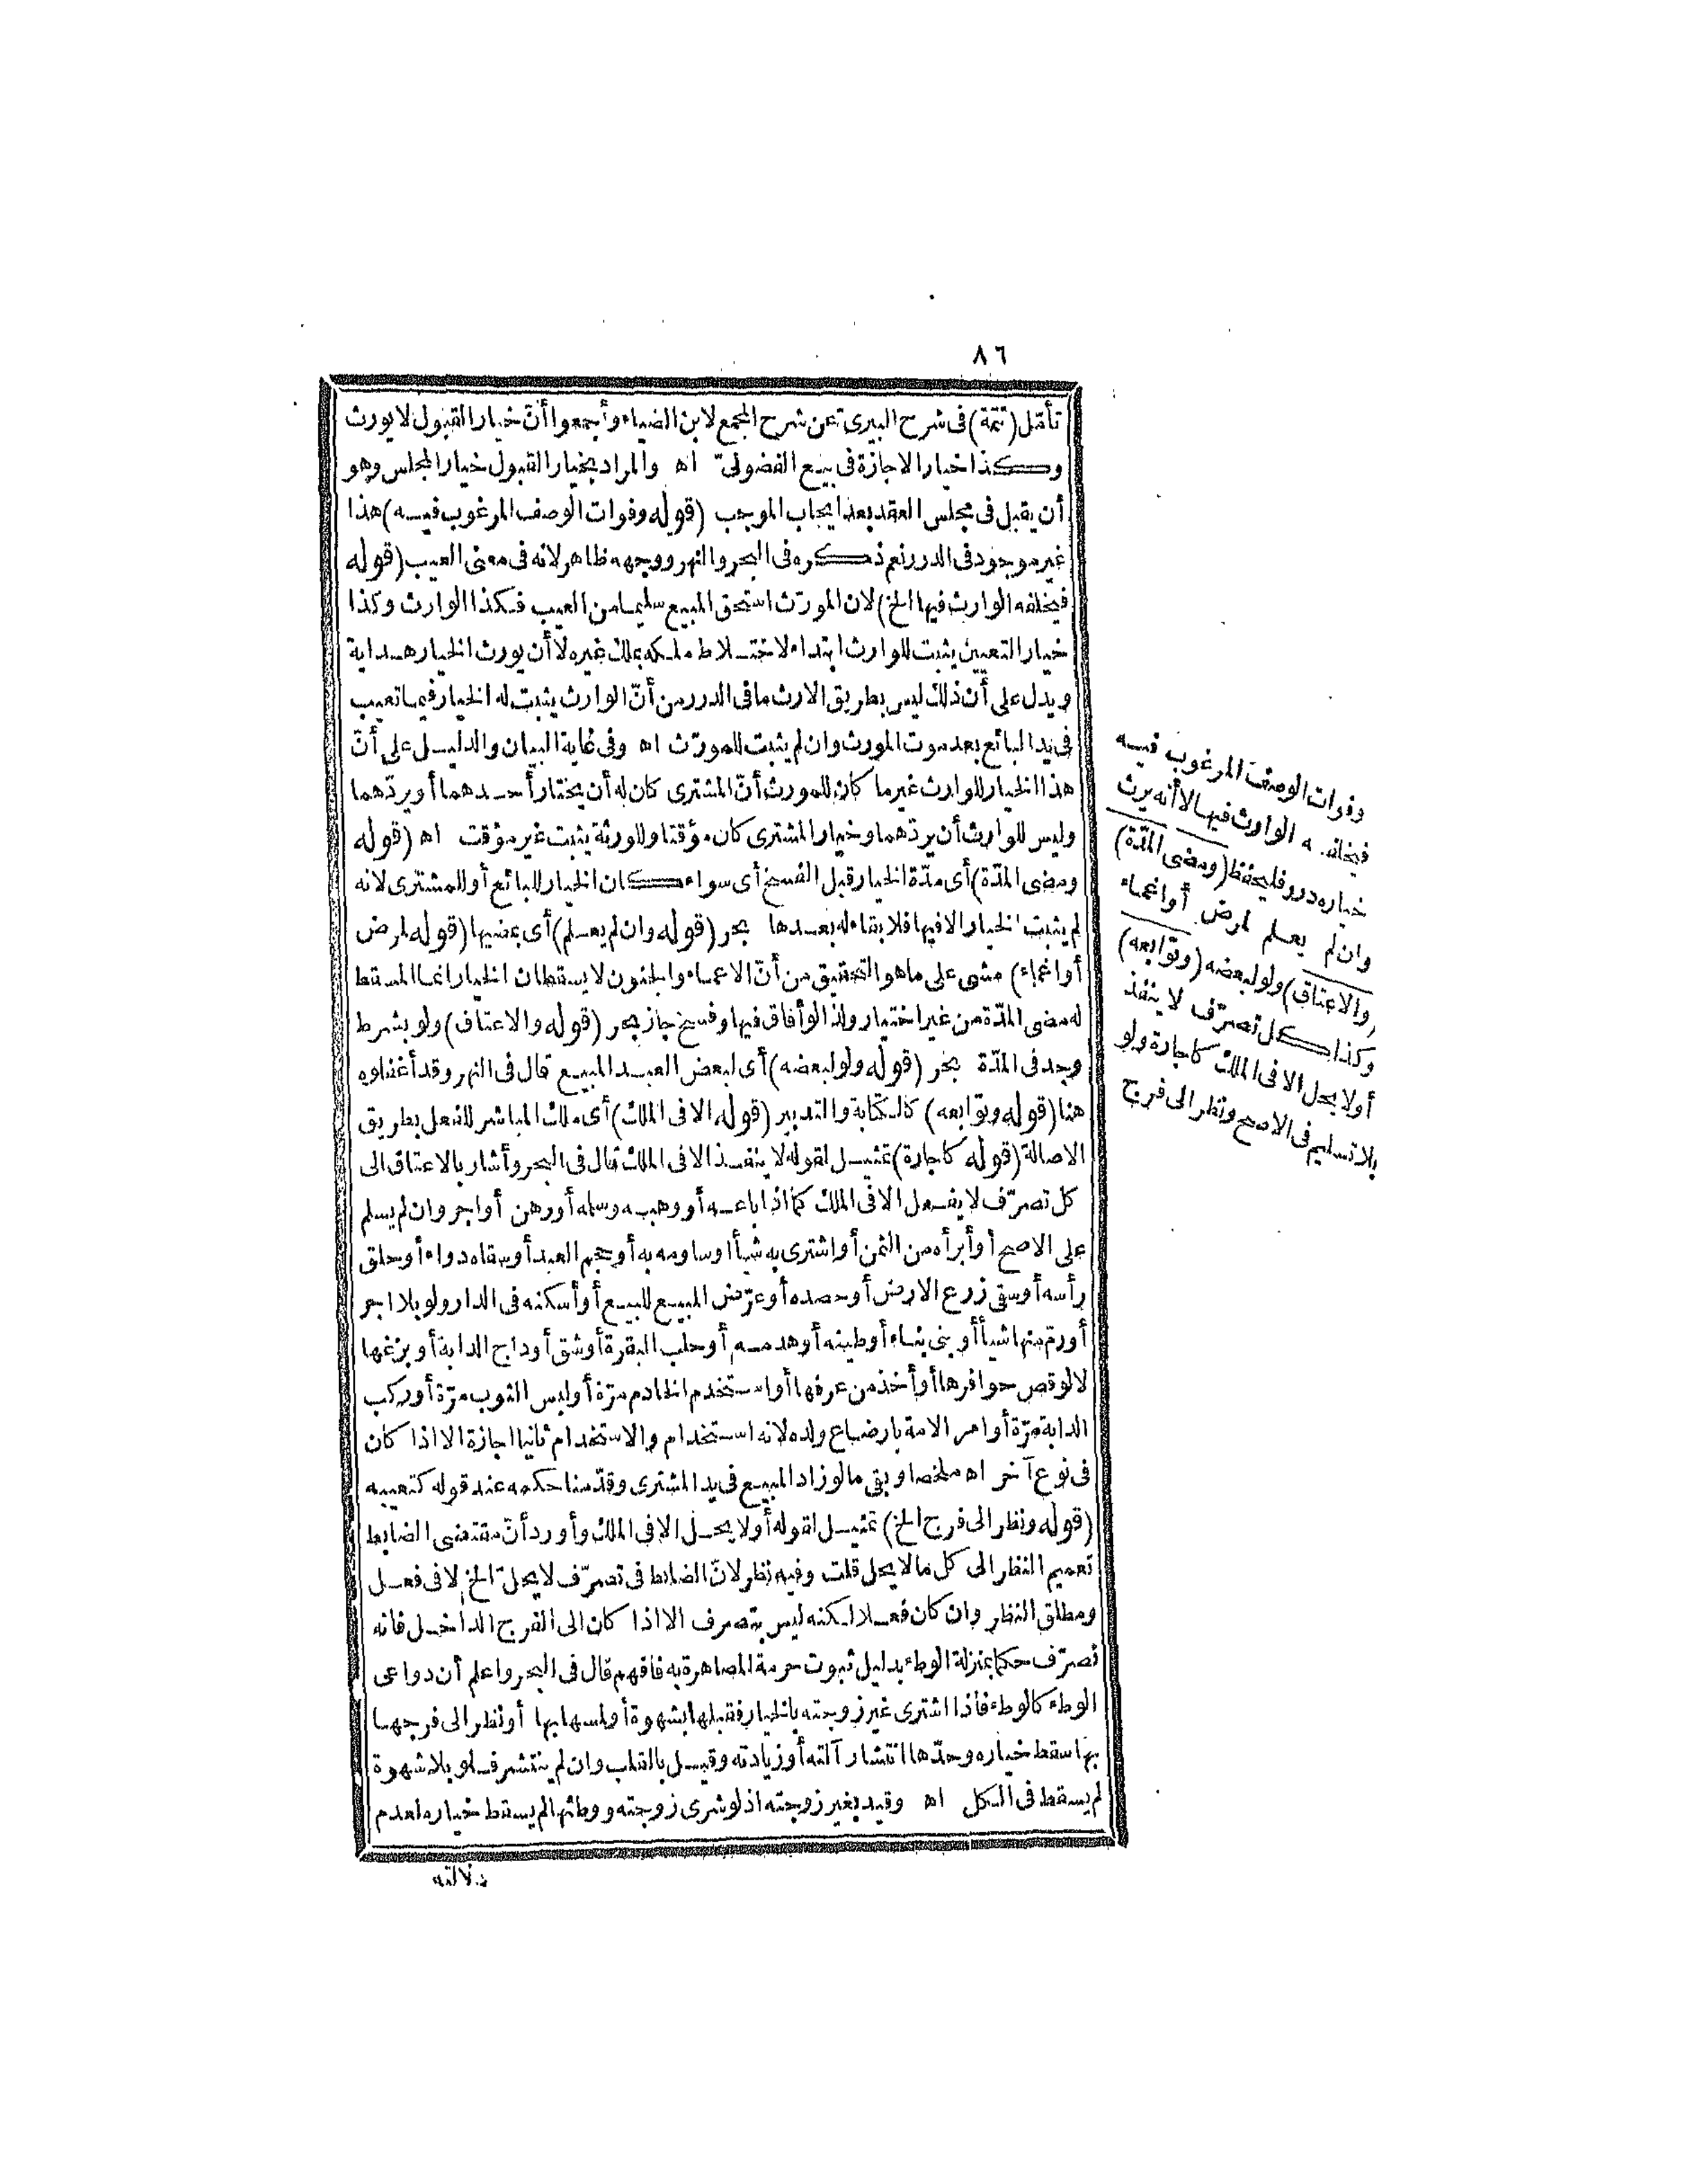 ٨٦
تأمّل (تتمة) فى شرح البيرى عن شرح المجمع لابن الضياء وأجمعوا أنّ خيار القبول لا يورث
وكذا خيار الاجازة فى بيع الفضولىّ اه والمراد بخيار القبول خيار المجلس وهو
أن يقبل فى مجلس العقد بعد ايجاب الموجب (قوله وفوات الوصف المرغوب فيه) هذا
غير موجود فى الدرر نعم ذكره فى البحر والنهر ووجهه ظاهر لانه فى معنى العيب (قوله
فيخلفه الوارث فيها الخ) لان المورّث استحق المبيع سليما من العيب فكذا الوارث وكذا
خيار التعيين يثبت للوارث ابتداء لاختلاط ملكه بملك غيره لا أن يورث الخيار هداية
ويدل على أن ذلك ليس بطريق الارث ما فى الدرر من أنّ الوارث يثبت له الخيار فيما تعيب
فى يد البائع بعد موت المورث وان لم يثبت للمورّث اه وفى غاية البيان والدليل على أنّ
هذا الخيار للوارث غير ما كان للمورث أنّ المشترى كان له أن يختار أحدهما أو يردّهما
وليس للوارث أن يردّهما وخيار المشترى كان مؤقتا وللورثة يثبت غير مؤقت اه (قوله
ومضى المدّة) أى مدّة الخيار قبل الفسخ أى سواء كان الخيار للبائع أو للمشترى لانه
لم يثبت الخيار الا فيها فلا بقاء له بعدها بحر (قوله وان لم يعلم) أى بمضيها (قوله لمرض
أو اغماء) مشى على ما هو التحقيق من أنّ الاغماء والجنون لا يسقطان الخيار انما المسقط
له مضى المدّة من غير اختيار ولذا لو أفاق فيها وفسخ جاز بحر (قوله والاعتاق) ولو بشرط
وجد فى المدّة بحر (قوله ولو لبعضه) أى لبعض العبد المبيع قال فى النهر وقد أغفلوه
هنا (قوله وتوابعه) كالكتابة والتدبير (قوله الا فى الملك) أى ملك المباشر للفعل بطريق
الاصالة (قوله كاجارة) تمثيل لقوله لا ينفذ الا فى الملك قال فى البحر وأشار بالاعتاق الى
كل تصرّف لا يفعل الا فى الملك كما اذا باعه أو وهبه وسلمه أو رهن أو اجر وان لم يسلم
على الاصح أو أبرأه من الثمن أو اشترى به شيأ أو ساومه به أو حجم العبد أو سقاه دواء أو حلق
رأسه أو سقى زرع الارض أو حصده أو عرّض المبيع للبيع أو أسكنه فى الدار ولو بلا اجر
أو رمّ منها شيأ أو بنى بناء أو طينه أو هدمه أو حلب البقرة أو شق أوداج الدابة أو بزغها
لا لو قص حوافرها أو أخذ من عرفها أو استخدم الخادم مرّة أو لبس الثوب مرّة أو ركب
الدابة مرّة أو امر الامة بارضاع ولده لانه استخدام والاستخدام ثانيا اجازة الا اذا كان
فى نوع آخر اه ملخصا وبقى ما لو زاد المبيع فى يد المشترى وقدّمنا حكمه عند قوله كتعيبه
(قوله ونظر الى فرج الخ) تمثيل لقوله أو لا يحل الا فى الملك وأورد أنّ مقتضى الضابط
تعميم النظر الى كل ما لا يحل قلت وفيه نظر لانّ الضابط فى تصرّف لا يحلّ الخ لا فى فعل
ومطلق النظر وان كان فعلا لكنه ليس بتصرف الا اذا كان الى الفرج الداخل فانه
تصرّف حكما بمنزلة الوطء بدليل ثبوت حرمة المصاهرة به فافهم قال فى البحر واعلم أن دواعى
الوطء كالوطء فاذا اشترى غير زوجته بالخيار فقبلها بشهوة أو لمسها بها أو نظر الى فرجها
بها سقط خياره وحدّها انتشار آلته أو زيادته وقيل بالقلب وان لم ينتشر فلو بلا شهوة
لم يسقط فى الكل اه وقيد بغير زوجته اذ لو شرى زوجته ووطئها لم يسقط خياره لعدم
دلالته
وفوات الوصف المرغوب فيه
فيخلفه الوارث فيها لا أنه يرث
خياره درر فليحفظ (ومضى المدّة)
وان لم يعلم لمرض أو اغماء
(والاعتاق) ولو لبعضه (وتوابعه)
وكذا كل تصرّف لا ينفذ
أو لا يحل الا فى الملك كاجارة ولو
بلا تسليم فى الاصح ونظر الى فرج